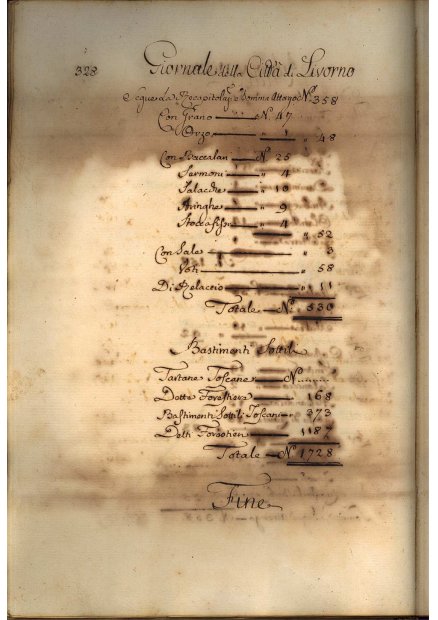 328 Giornale della Città di Livorno
Segue la Recapitolaz.e Somma Attayo N.º 358
Con Grano N. 47
Orzo " 1 " 48
Con Baccalari N. 25
Sermoni " 4
Salacche " 10
Aringhe " 9
Stoccafissi " 4
" 52
Con Sale " 3
Voti " 58
Di Relaccio " 11
Totale N.º 530
Bastimenti Sottili
Tartane Toscane N.
Dette Forestiere " 168
Bastimenti Sottili Toscani 373
Detti Forestieri 1187
Totale N.º 1728
Fine